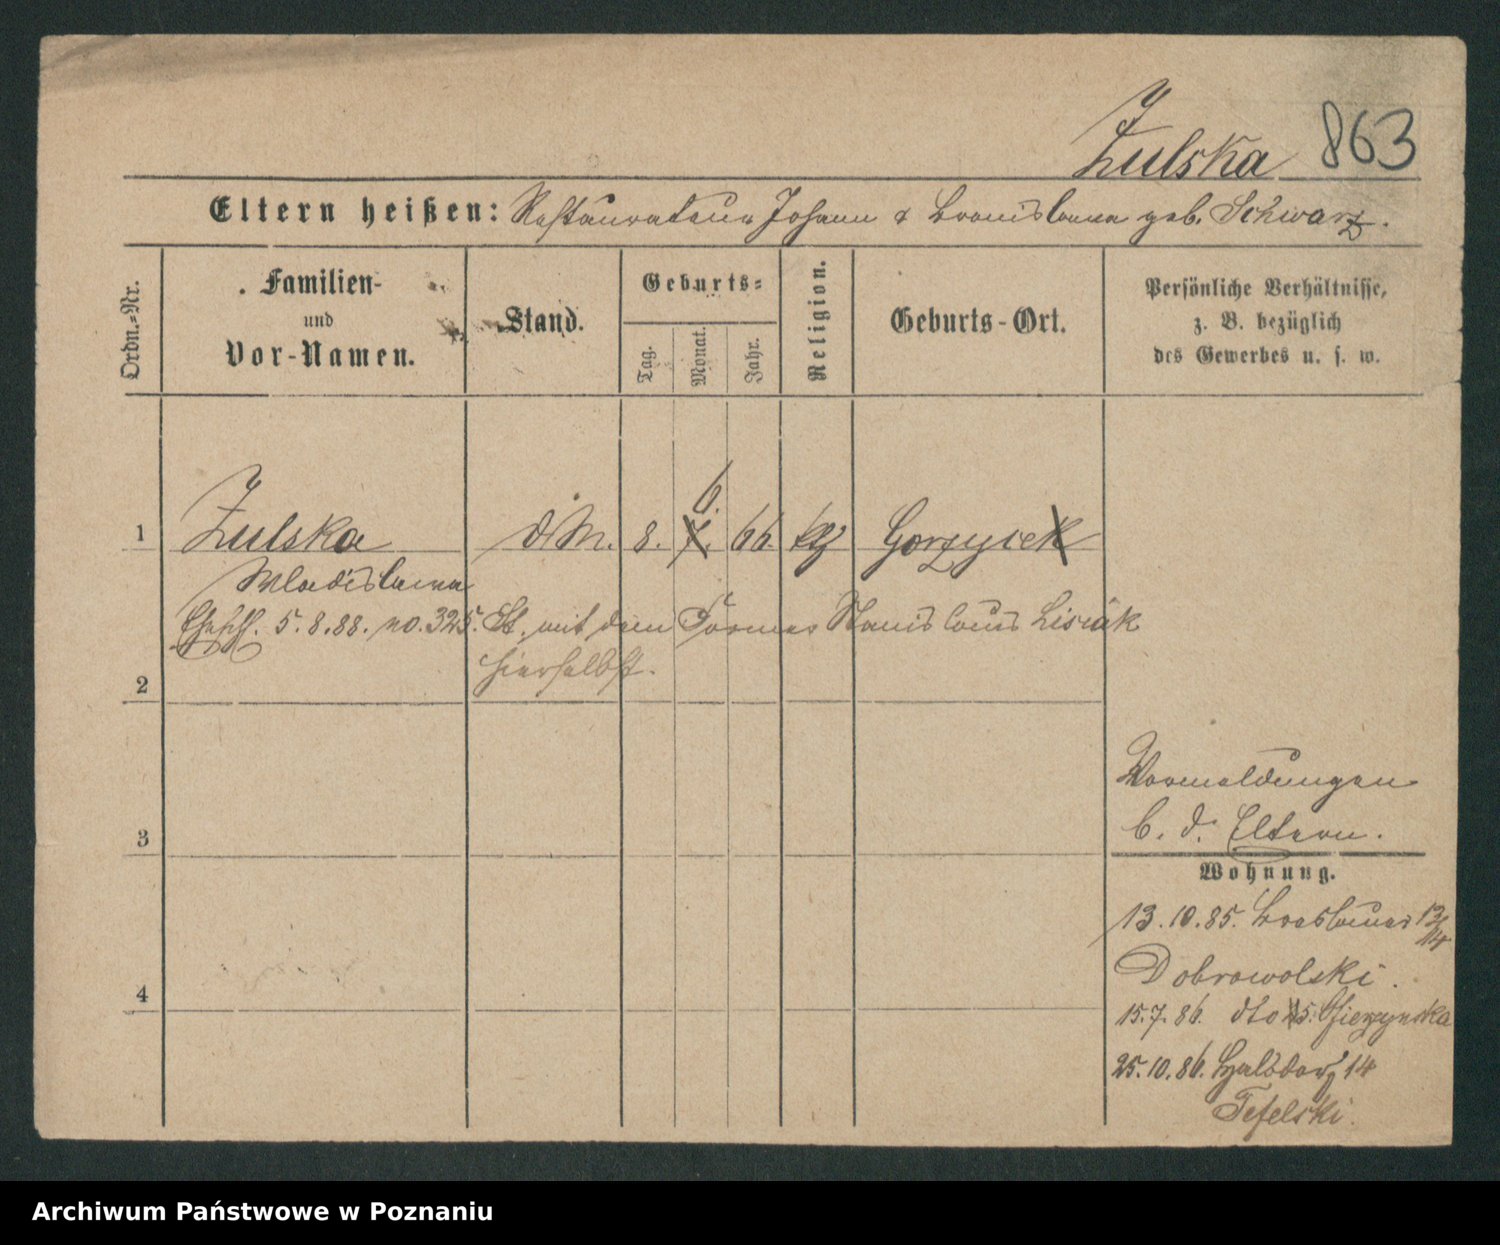 Zulska 863
Eltern heißen: Restaurateur Johann & Bronislawa geb. Schwarz.
Ordn.-Nr.
Familien-
und
Vor-Namen.
Stand.
Geburts-
Tag.
Monat.
Jahr.
Religion.
Geburts-Ort.
Persönliche Verhältnisse,
z. B. bezüglich
des Gewerbes u. s. w.
6.
1 Zulska d. M. 8. 7. 66. kg Gorzycek
Wladislawa
Ehesch. 5.8.88. no. 325. St. mit dem Former Stanislaus Lisiak
hierselbst.
2
3
4
Vormeldungen
b. d. Eltern.
Wohnung.
13.10.85. Breslauer 13/14
Dobrowolski.
15.7.86. dto 15.
25.10.86. Halbdorf 14
Tefelski.
Archiwum Państwowe w Poznaniu